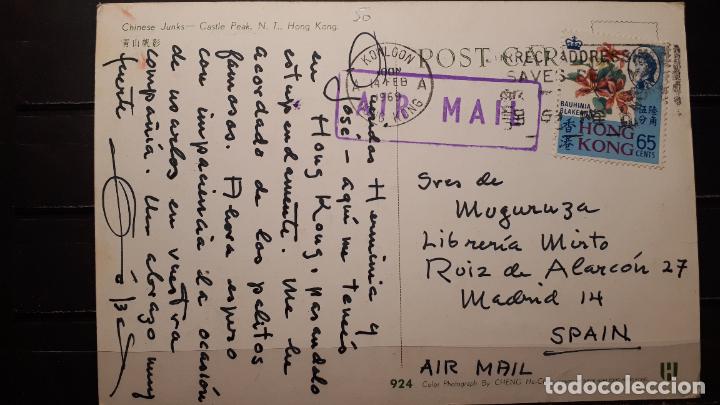 50
Chinese Junks — Castle Peak, N. T., Hong Kong.
青山帆影
POST CARD
KOWLOON
14 FEB
1969
HONG KONG
A
CORRECT ADDRESSING
SAVES
AIR MAIL
BAUHINIA
BLAKEANA
香港
伍陸
分角
HONG
KONG
65
CENTS
Queridos Herminia y
José – aquí me tenéis
en Hong Kong, pasándolo
estupendamente. Me he
acordado de los palitos
famosos. Ahora espero
con impaciencia la ocasión
de usarlos en vuestra
compañía. Un abrazo muy
fuerte
Sres de
Muguruza
Librería Mirto
Ruiz de Alarcón 27
Madrid 14
SPAIN
AIR MAIL
924 Color Photograph By CHENG
todocoleccion.net